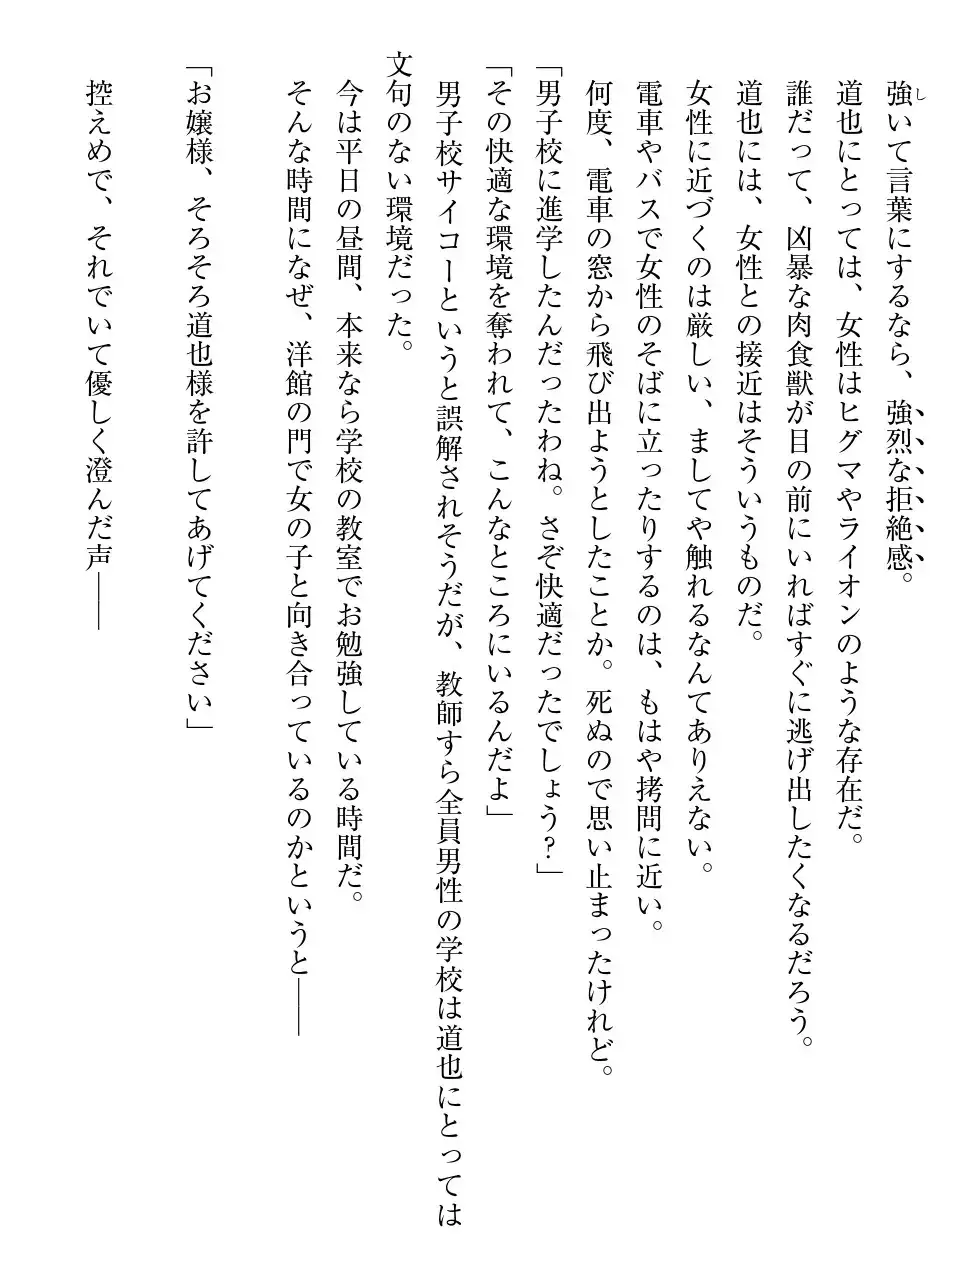 強いて言葉にするなら、強烈な拒絶感。
道也にとっては、女性はヒグマやライオンのような存在だ。
誰だって、凶暴な肉食獣が目の前にいればすぐに逃げ出したくなるだろう。
道也には、女性との接近はそういうものだ。
女性に近づくのは厳しい、ましてや触れるなんてありえない。
電車やバスで女性のそばに立ったりするのは、もはや拷問に近い。
何度、電車の窓から飛び出ようとしたことか。死ぬので思い止まったけれど。
「男子校に進学したんだったわね。さぞ快適だったでしょう？」
「その快適な環境を奪われて、こんなところにいるんだよ」
男子校サイコーというと誤解されそうだが、教師すら全員男性の学校は道也にとっては
文句のない環境だった。
今は平日の昼間、本来なら学校の教室でお勉強している時間だ。
そんな時間になぜ、洋館の門で女の子と向き合っているのかというと――
「お嬢様、そろそろ道也様を許してあげてください」
控えめで、それでいて優しく澄んだ声――